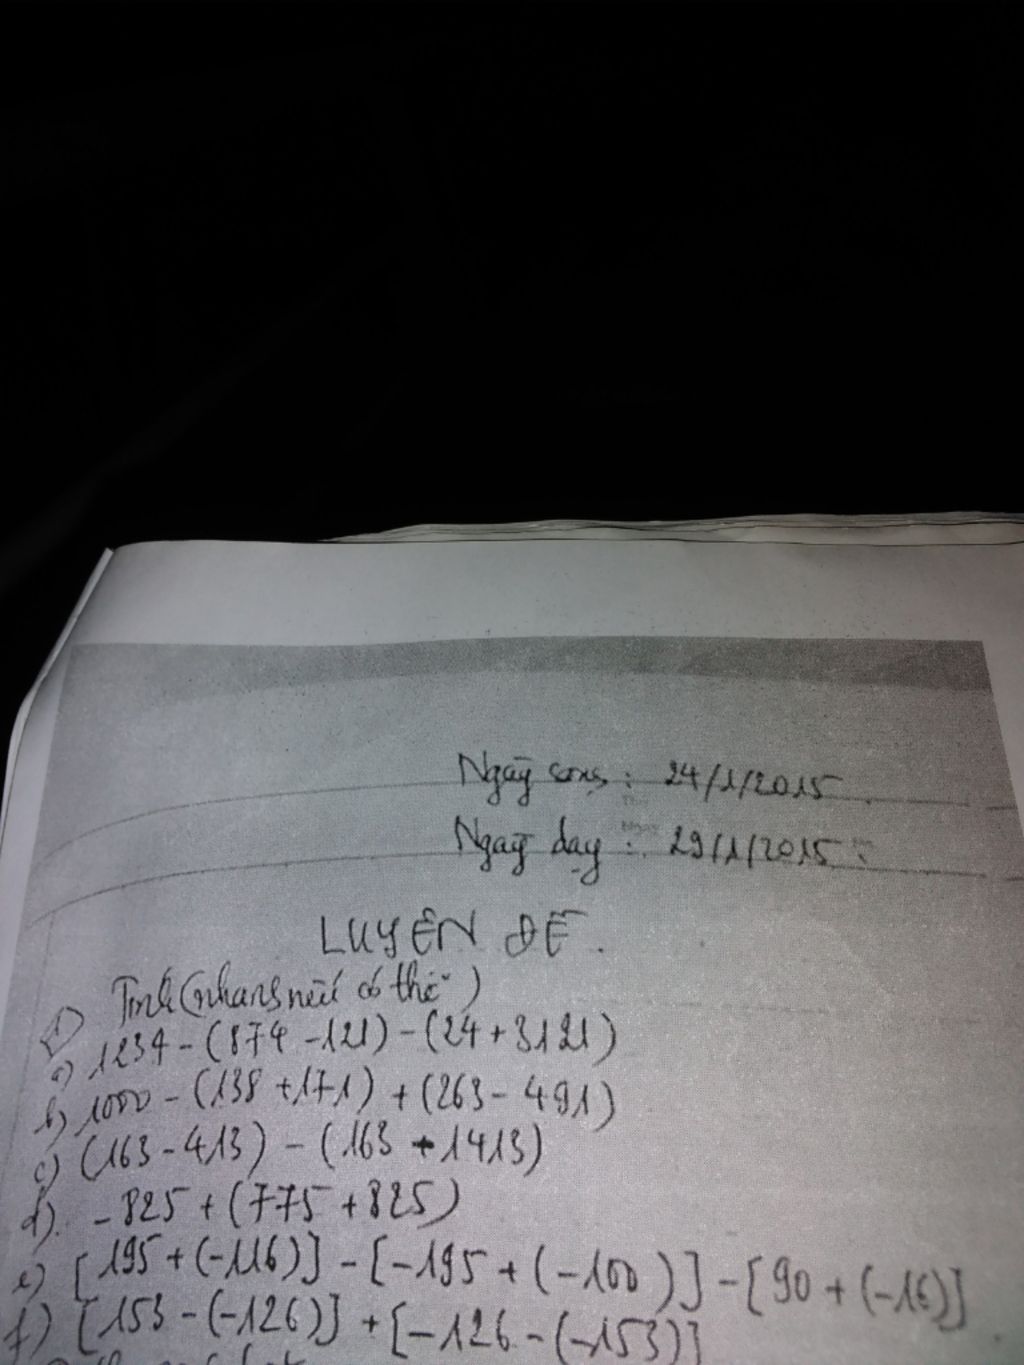 Ngày soạn : 24/1/2015
Ngày dạy : 29/1/2015
LUYỆN ĐỀ.
1) Tính (nhanh nếu có thể)
a) 1234 - (874 - 121) - (24 + 3121)
b) 1000 - (138 + 171) + (263 - 491)
c) (163 - 413) - (163 + 1413)
d). - 825 + (775 + 825)
e) [195 + (-116)] - [-195 + (-100)] - [90 + (-16)]
f) [153 - (-126)] + [-126 - (-153)]